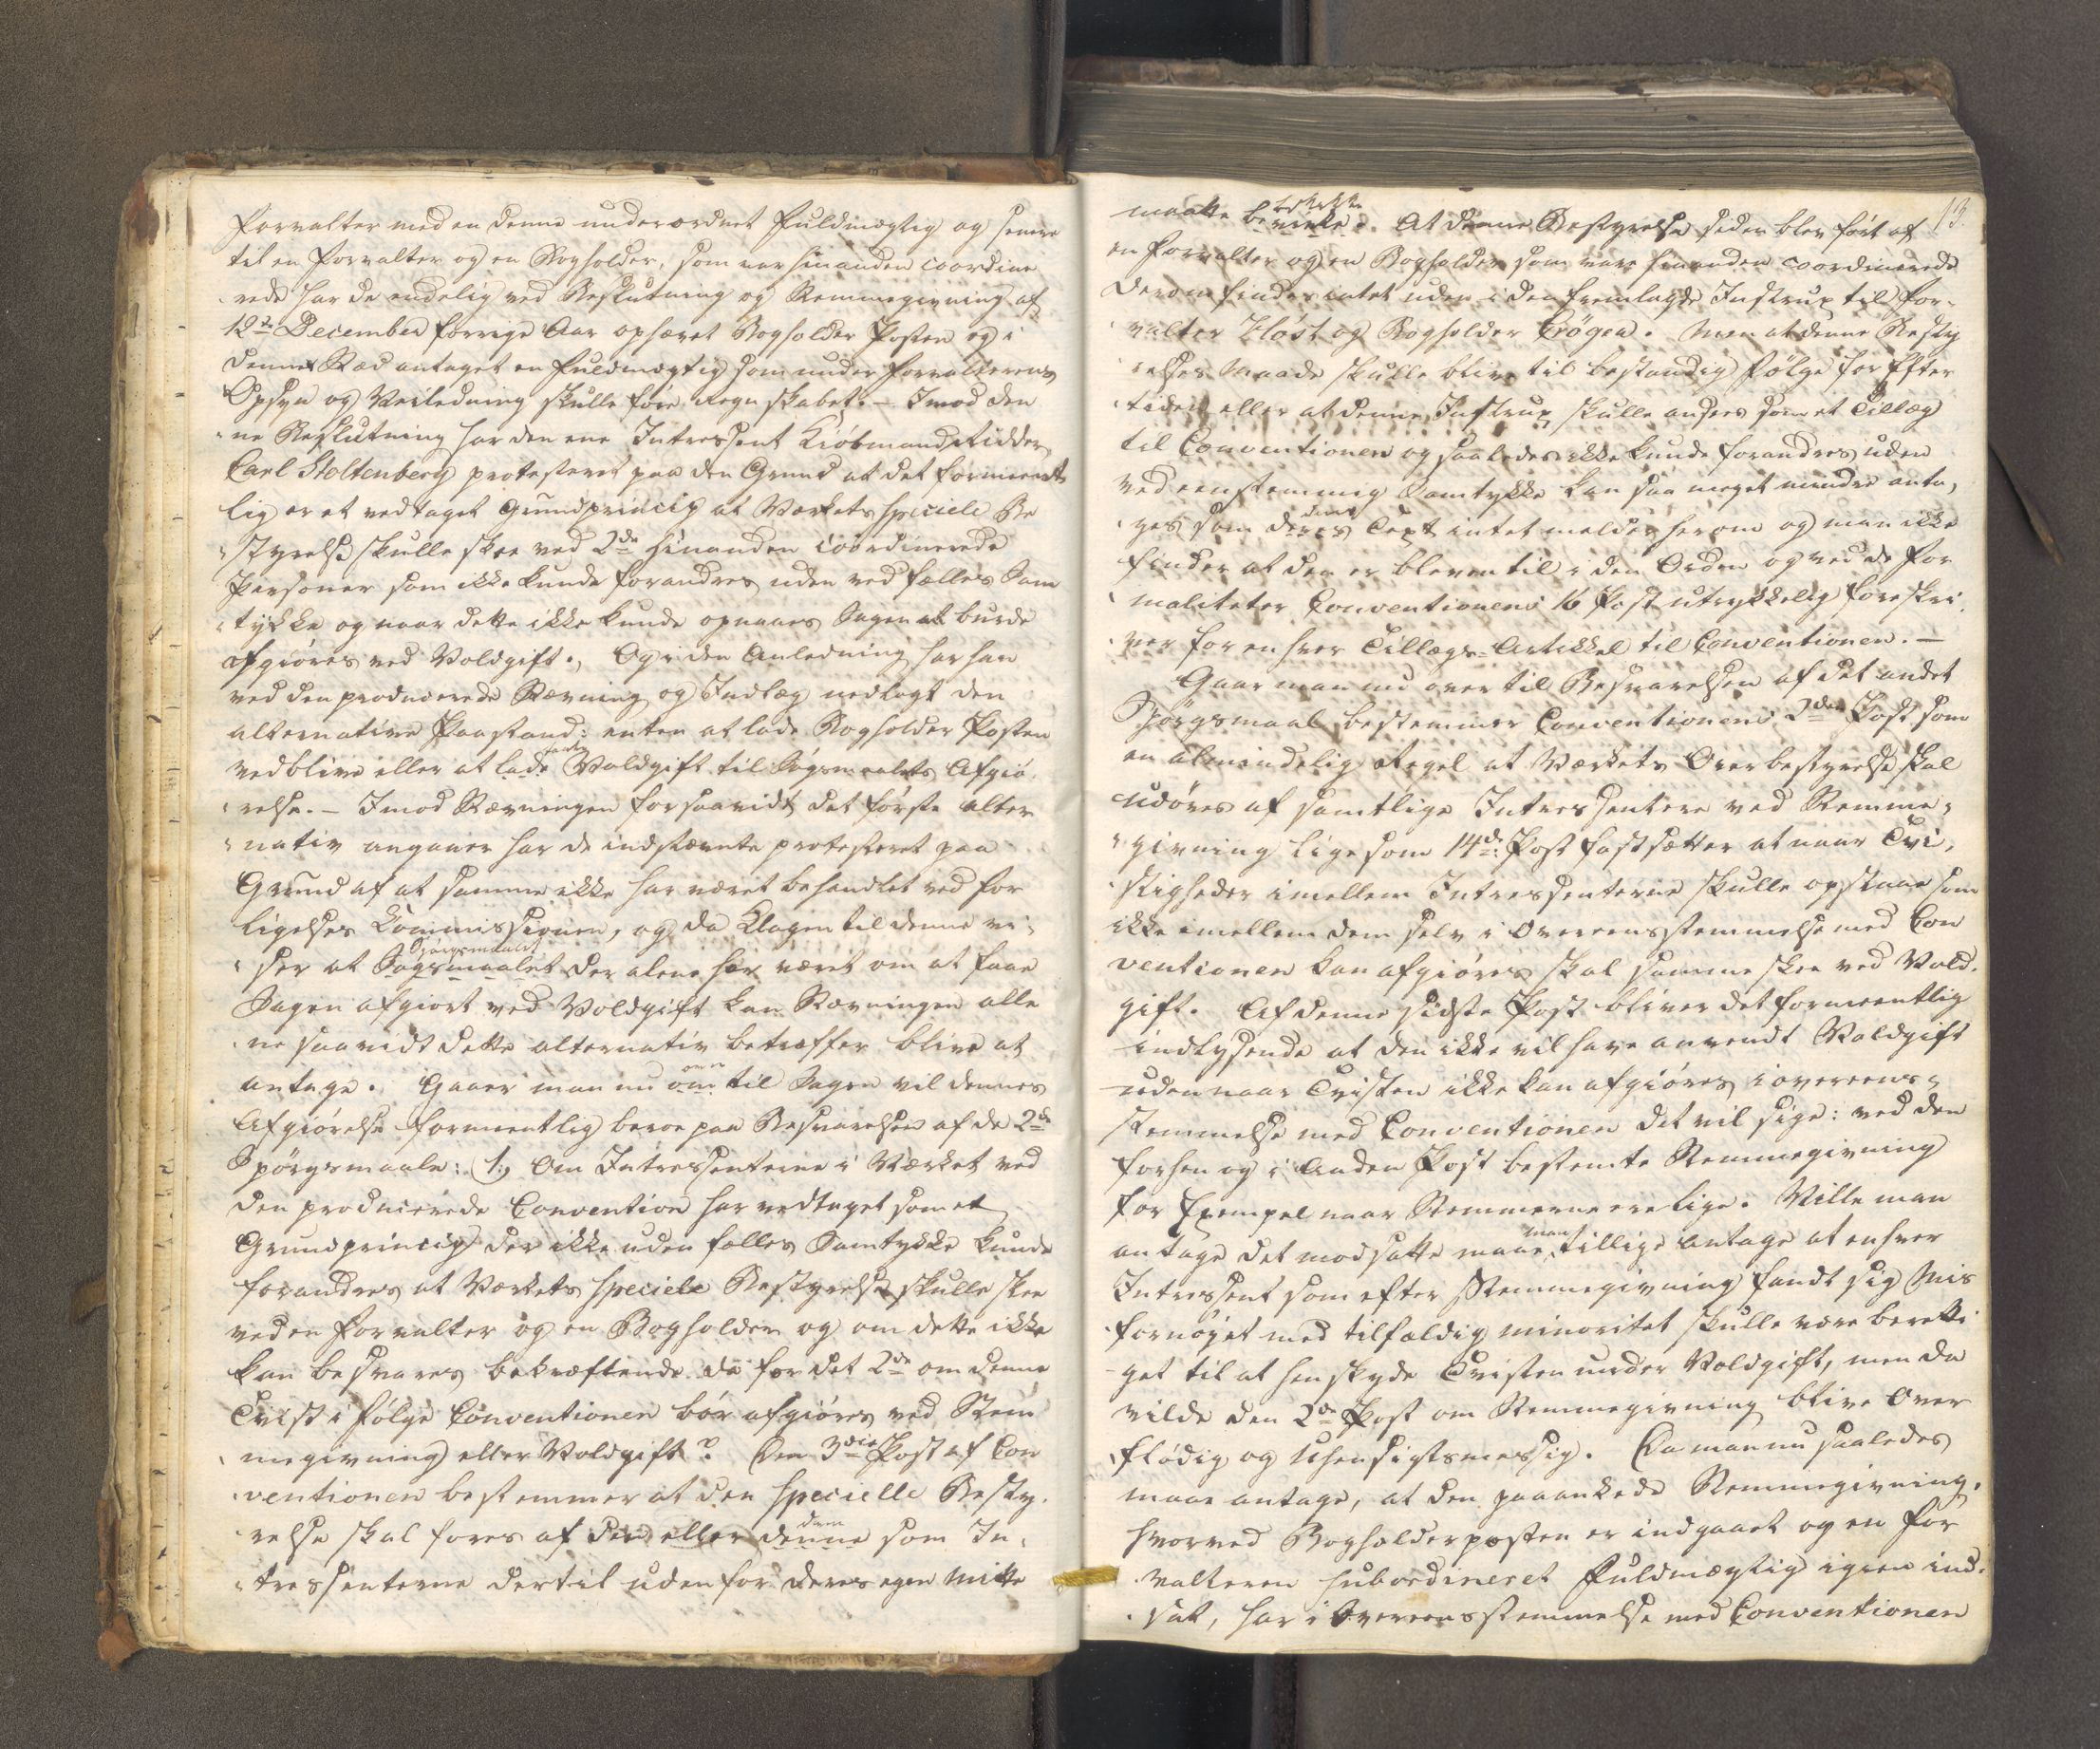 Forvalter med en denne underordnet Fuldmægtig og senere
til en Forvalter og en Bogholder, som var hinanden coordine
rede har de endelig ved Beslutning og Stemmegivning af
12te December forrige Aar ophævet Bogholder Posten og i
dennes Stæd antaget en Fuldmægtig som under Forvalterens
Opsyn og Veiledning skulle føre Regnskabet. – Imod den
ne Beslutning har den ene Intressent Kiöbmand Ridder
Carl Stoltenberg protesteret paa den Grund at det formeent
lig er et vedtaget Grundprincip at Værkets specielle Be
styrelse skulle skee ved 2de hinanden coordinerede
Personer som ikke kunde forandres uden ved fælles Sam
tykke og naar dette ikke kunde opnaaes Sagen at burde
afgiöres ved Voldgift., Og i den Anledning har han
ved den producerede Stævning og Indlæg nedlagt den
alternative Paastand: enten at lade Bogholder Posten
vedblive eller at lade Voldgift til Søgsmaalets Afgiö
relse. – Imod Stævningen forsaavidt det første Alter
nativ angaaer har de indstævnte protesteret paa
Grund af at samme ikke har været behandlet ved For
ligelses Commissionen, og da Klagen til denne vi
Spörgsmaalet
ser at Søgsmaalet der alene har været om at faae
Sagen afgiort ved Voldgift kan Stævningen alle
ne saavidt dette alternativ betræffer blive at
antage. Gaaer man nu om til Sagen vil dennes
Afgiörelse formeentlig beroe paa Besvarelsen af de 2de
Spörgsmaale: 1, Om Intressenterne i Værket ved
den producerede Convention har vedtaget som et
Grundprincip der ikke uden fælles Samtykke kunde
forandres at Værkets specielle Bestyrelse skulle skee
ved en Forvalter og en Bogholder og om dette ikke
kan besvares bekræftende da for det 2de om denne
Tvist i Følge Conventionen bör afgiöres ved Stem
megivning eller Voldgift? Den 3die Post af Con
ventionen bestemmer at den specielle Besty
relse skal føres af den eller denne som In
dem
tressenterne dertil uden for deres egen Mitte
13.
maatte beviike. At denne Bestyrelse siden blev fört af
en Forvalter og en Bogholder som vare hinanden coordinerede
derom findes intet uden i den fremlagde Instrux til For-
valter Höst og Bogholder Crøger. Men at denne Besty
relses Maade skulle blive til bestandig Følge for Efter
tiden eller at denne Instrux skulle ansees som et Tillæg
til Conventionen og saaledes ikke kunde forandres uden
ved eenstemmig Samtykke kan saa meget mindre anta,
ges som deres Text intet melder herom og man ikke
finder at den er bleven til i den Orden og ved de For
maliteter Conventionens 16 Post utrykkelig foreskri
ver for en hver Tillægs-Artikkel til Conventionen. –
Gaar man nu over til Besvarelsen af det andet
Spörgsmaal bestemmer Conventionens 2den Post som
en almindelig Regel at Værkets Overbestyrelse skal
udöves af samtlige Intressentere ved Stemme,
givning ligesom 14de Post fastsætter at naar Tvi,
stigheder imellem Intressenterne skulle opstaae som
ikke imellem dem selv i Overeensstemmelse med Con
ventionen kan afgiöres skal samme skee ved Vold.
gift. Af denne sidste Post bliver det formeentlig
indlysende at den ikke vil have anvendt Voldgift
uden naar Tvisten ikke kan afgiöres i overeens
stemmelse med Conventionen det vil sige: ved den
forhen og i Anden Post bestemte Stemmegivning
for Exempel naar Stemmerne ere lige. Ville man
man
antage det modsatte maae tillige antage at enhver
Intressent som efter Stemmegivning fandt sig Mis
fornöjet med tilfældig minoritet skulle være beretti
get til at henskyde Tvisten under Voldgift, men da
vilde den 2de Post om Stemmegivning blive Over
flödig og Uhensigtsmessig. Da man nu saaledes
maae antage, at den paaankede Stemmegivning,
hvorved Bogholderposten er indgaaet og en For
valteren subordineret Fuldmægtig igien ind
sat, har i Overeensstemmelse med Conventionen